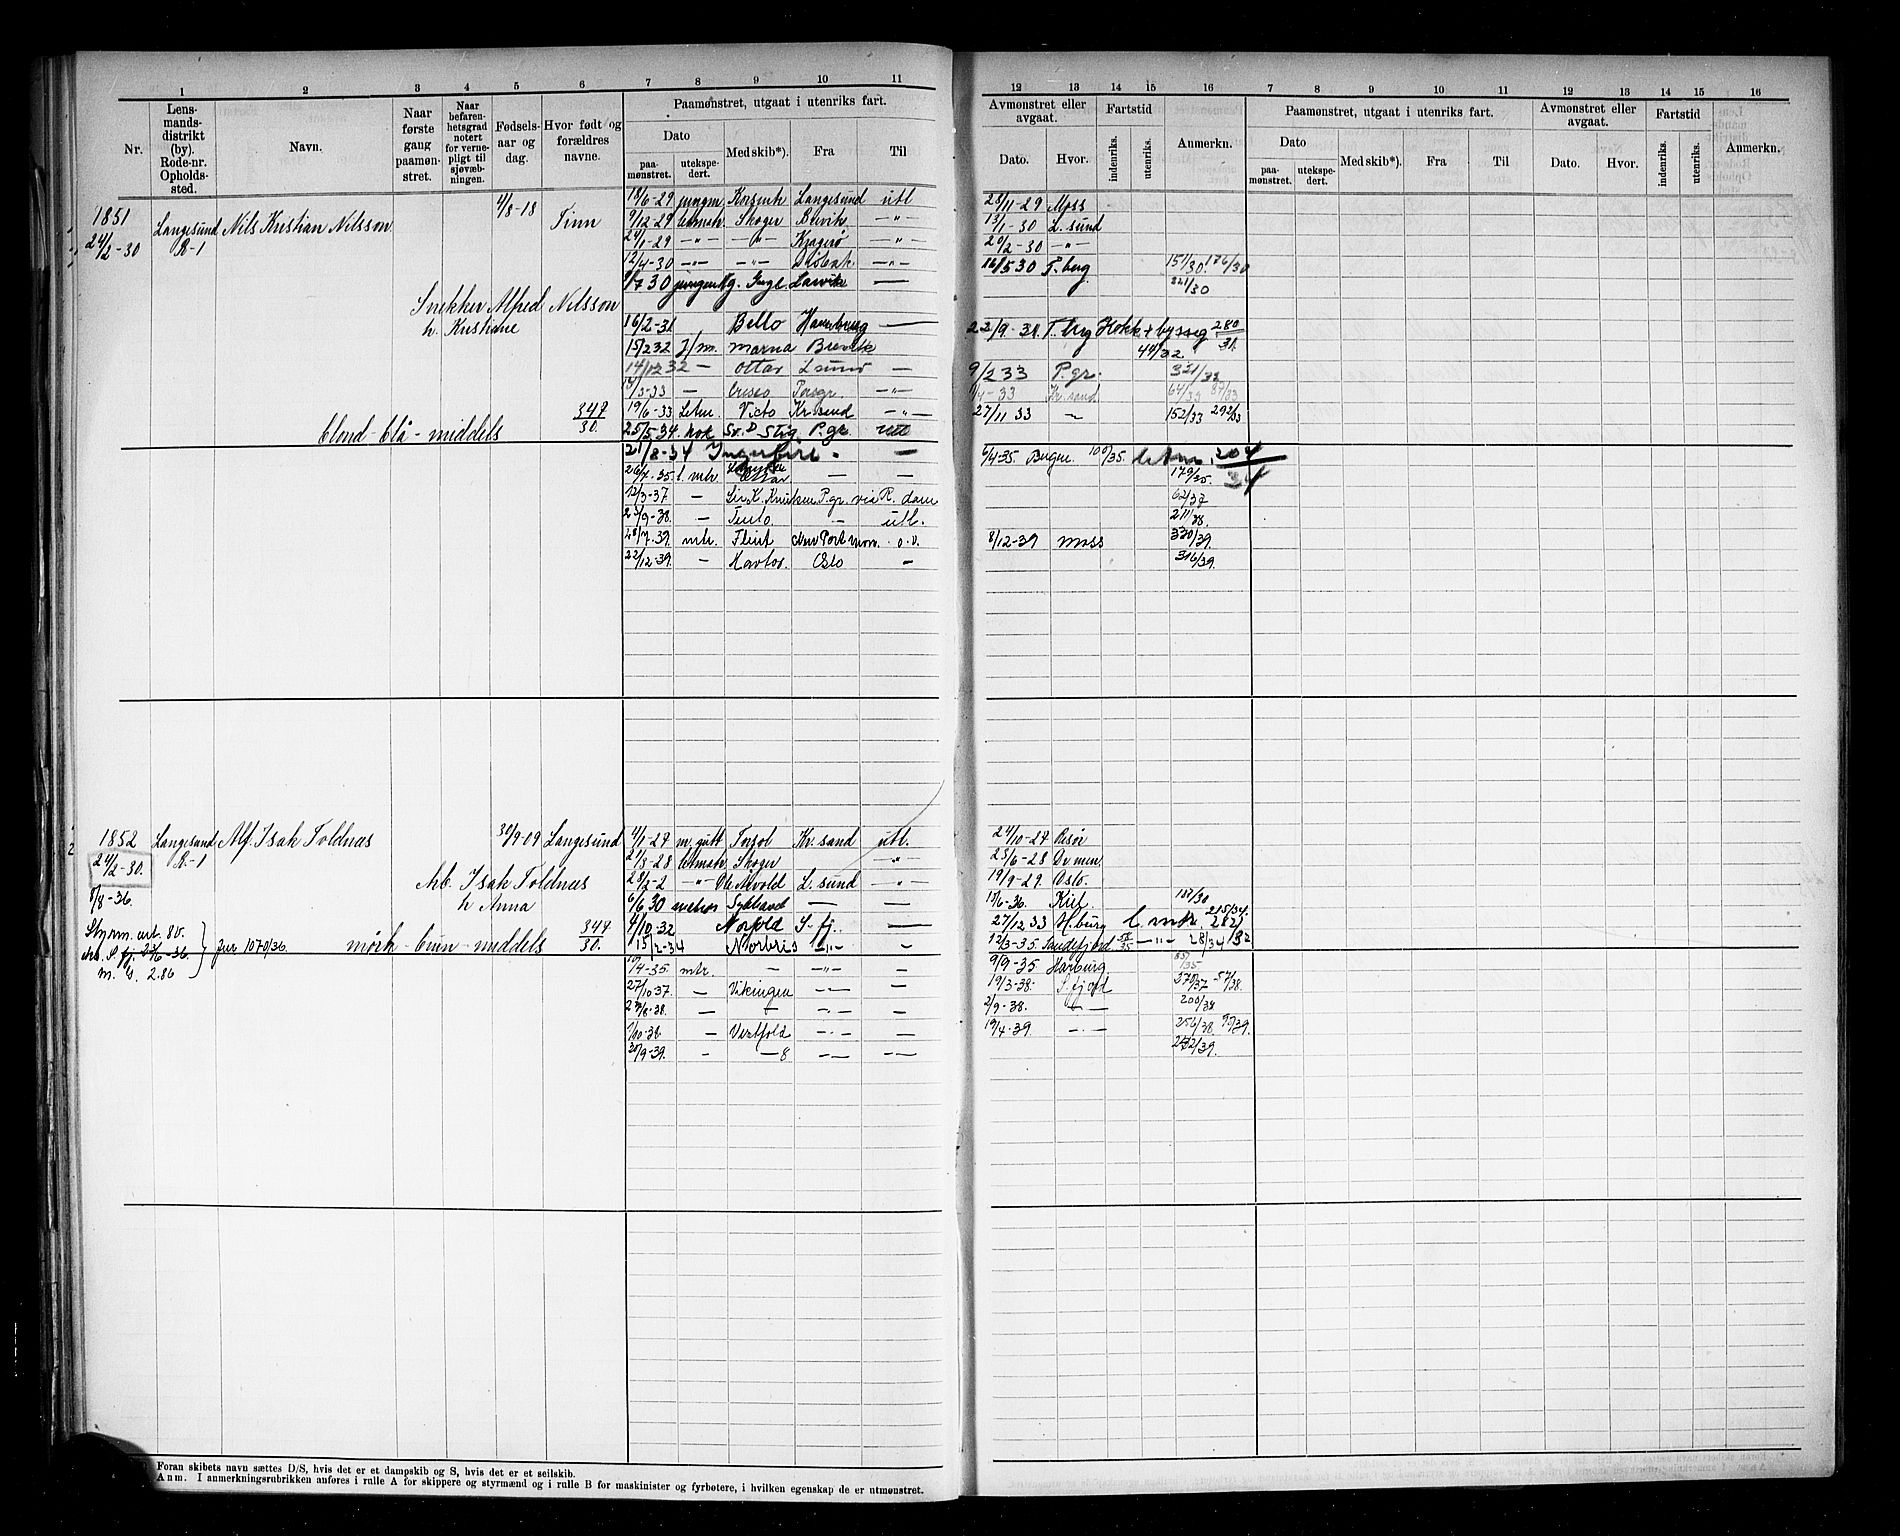 1 2 3 4 5 6 7 8 9 10 11
Nr.
Lens-
mands-
distrikt
(by).
Rode-nr.
Opholds-
sted.
Navn.
Naar
første
gang
paamøn-
stret.
Naar
befaren-
hetsgrad
notert
for verne-
pligt til
sjøvæb-
ningen.
Fødsels-
aar og
dag.
Hvor født og
forældres
navne.
Paamønstret, utgaat i utenriks fart.
Dato
paa-
mønstret.
utekspe-
dert.
Med skib*).
Fra
Til
1851 Langesund Nils Kristian Nilsson 4/8-18 Tinn
24/2-30 R-1
Snekker Alfred Nilsson
h. Kristiane
347/30.
blond-blå-middels
18/6-29 jungm Langesund utl
9/12-29 letmatr Skoger Brevik -"-
24/1-29 -"- -"- Kragerø -"-
12/4-30 -"- -"- -"-
9/7 30 Larvik —
16/2-31 Bello —
15/2 32 J/m. Marna Brevik
14/12 32 - Ottar L sund —
-33 — Porsgr. -"-
19/6-33 Letm. Victo Kr.sund -"-
25/5-34. kok Stig P.gr utl
21/8-34 - —
26/7-35. l. mtr Ottar — —
12/3-37 — K. Knudsen P.gr via R. dam
23/9-38. — Tento — utl.
28/7-39. mtr. Flint New Port Mon. o.v.
22/12-39. — Havtor. Oslo —
1852 Langesund Alf Isak Toldnæs 30/9-09 Langesund
24/2-30. R-1
8/8-36.
Arb. Isak Toldnæs
h Anna
347/30.
mørk-brun-middels
Styrm. art. 80.
jur 1070/36.
m. G. 2.86
4/1-27 m.gutt Kr. sand utl.
21/3-28 letmatr Skoger -"-
28/2-2 -"- L. sund -"-
6/6 30 Sydhavet — —
4/10-32 Norfold S-fj. —
15/2-34 Norbris -"- -
4-35. mtr. — -"- —
27/10-37. — Vikingen -"- —
28/8-38. — — -"- —
1/10-38. — Vestfold -"- —
30/9-39. - — 8 -"- —
Foran skibets navn sættes D/S, hvis det er et dampskib og S, hvis det er et seilskib.
Anm. I anmerkningsrubrikken anføres i rulle A for skippere og styrmænd og i rulle B for maskinister og fyrbøtere, i hvilken egenskap de er utmønstret.
12 13 14 15 16 7 8 9 10 11 12 13 14 15 16
Avmønstret eller
avgaat.
Dato.
Hvor.
Fartstid
indenriks.
utenriks.
Anmerkn.
Paamønstret, utgaat i utenriks fart.
Dato
paa-
mønstret.
utekspe-
dert.
Med skib*).
Fra
Til
Avmønstret eller
avgaat.
Dato.
Hvor.
Fartstid
indenriks.
utenriks.
Anmerkn.
28/11-29 Moss
13/1-30 L. sund
20/2-30 -"-
16/5 30 T. berg 151/30. 176/30
221/30
22/9-31. T. brg 280/31.
44/32.
9/2 33 P.gr. 331/32
-33 Kr. sand 64/33 87/33
27/11 33 ~ 152/33 292/33
6/4-35. Bergen. 100/35. 204/34
179/35.
62/37
211/38.
8/12-39 Moss 320/39.
316/39.
24/10-27 Risør
23/6-28 Drmen
19/9-29. Oslo.
15/6-36. Kiel 132/30
27/12 33 H.burg l. mtr 215/34.
12/3-35 Sandefjord -"- 28/34
9/9-35 Harburg
19/3-38. S.fjord 370/37 -57/38.
2/9-38. — — 200/38
19/4-39 -"- 256/38. 90/39.
232/39.